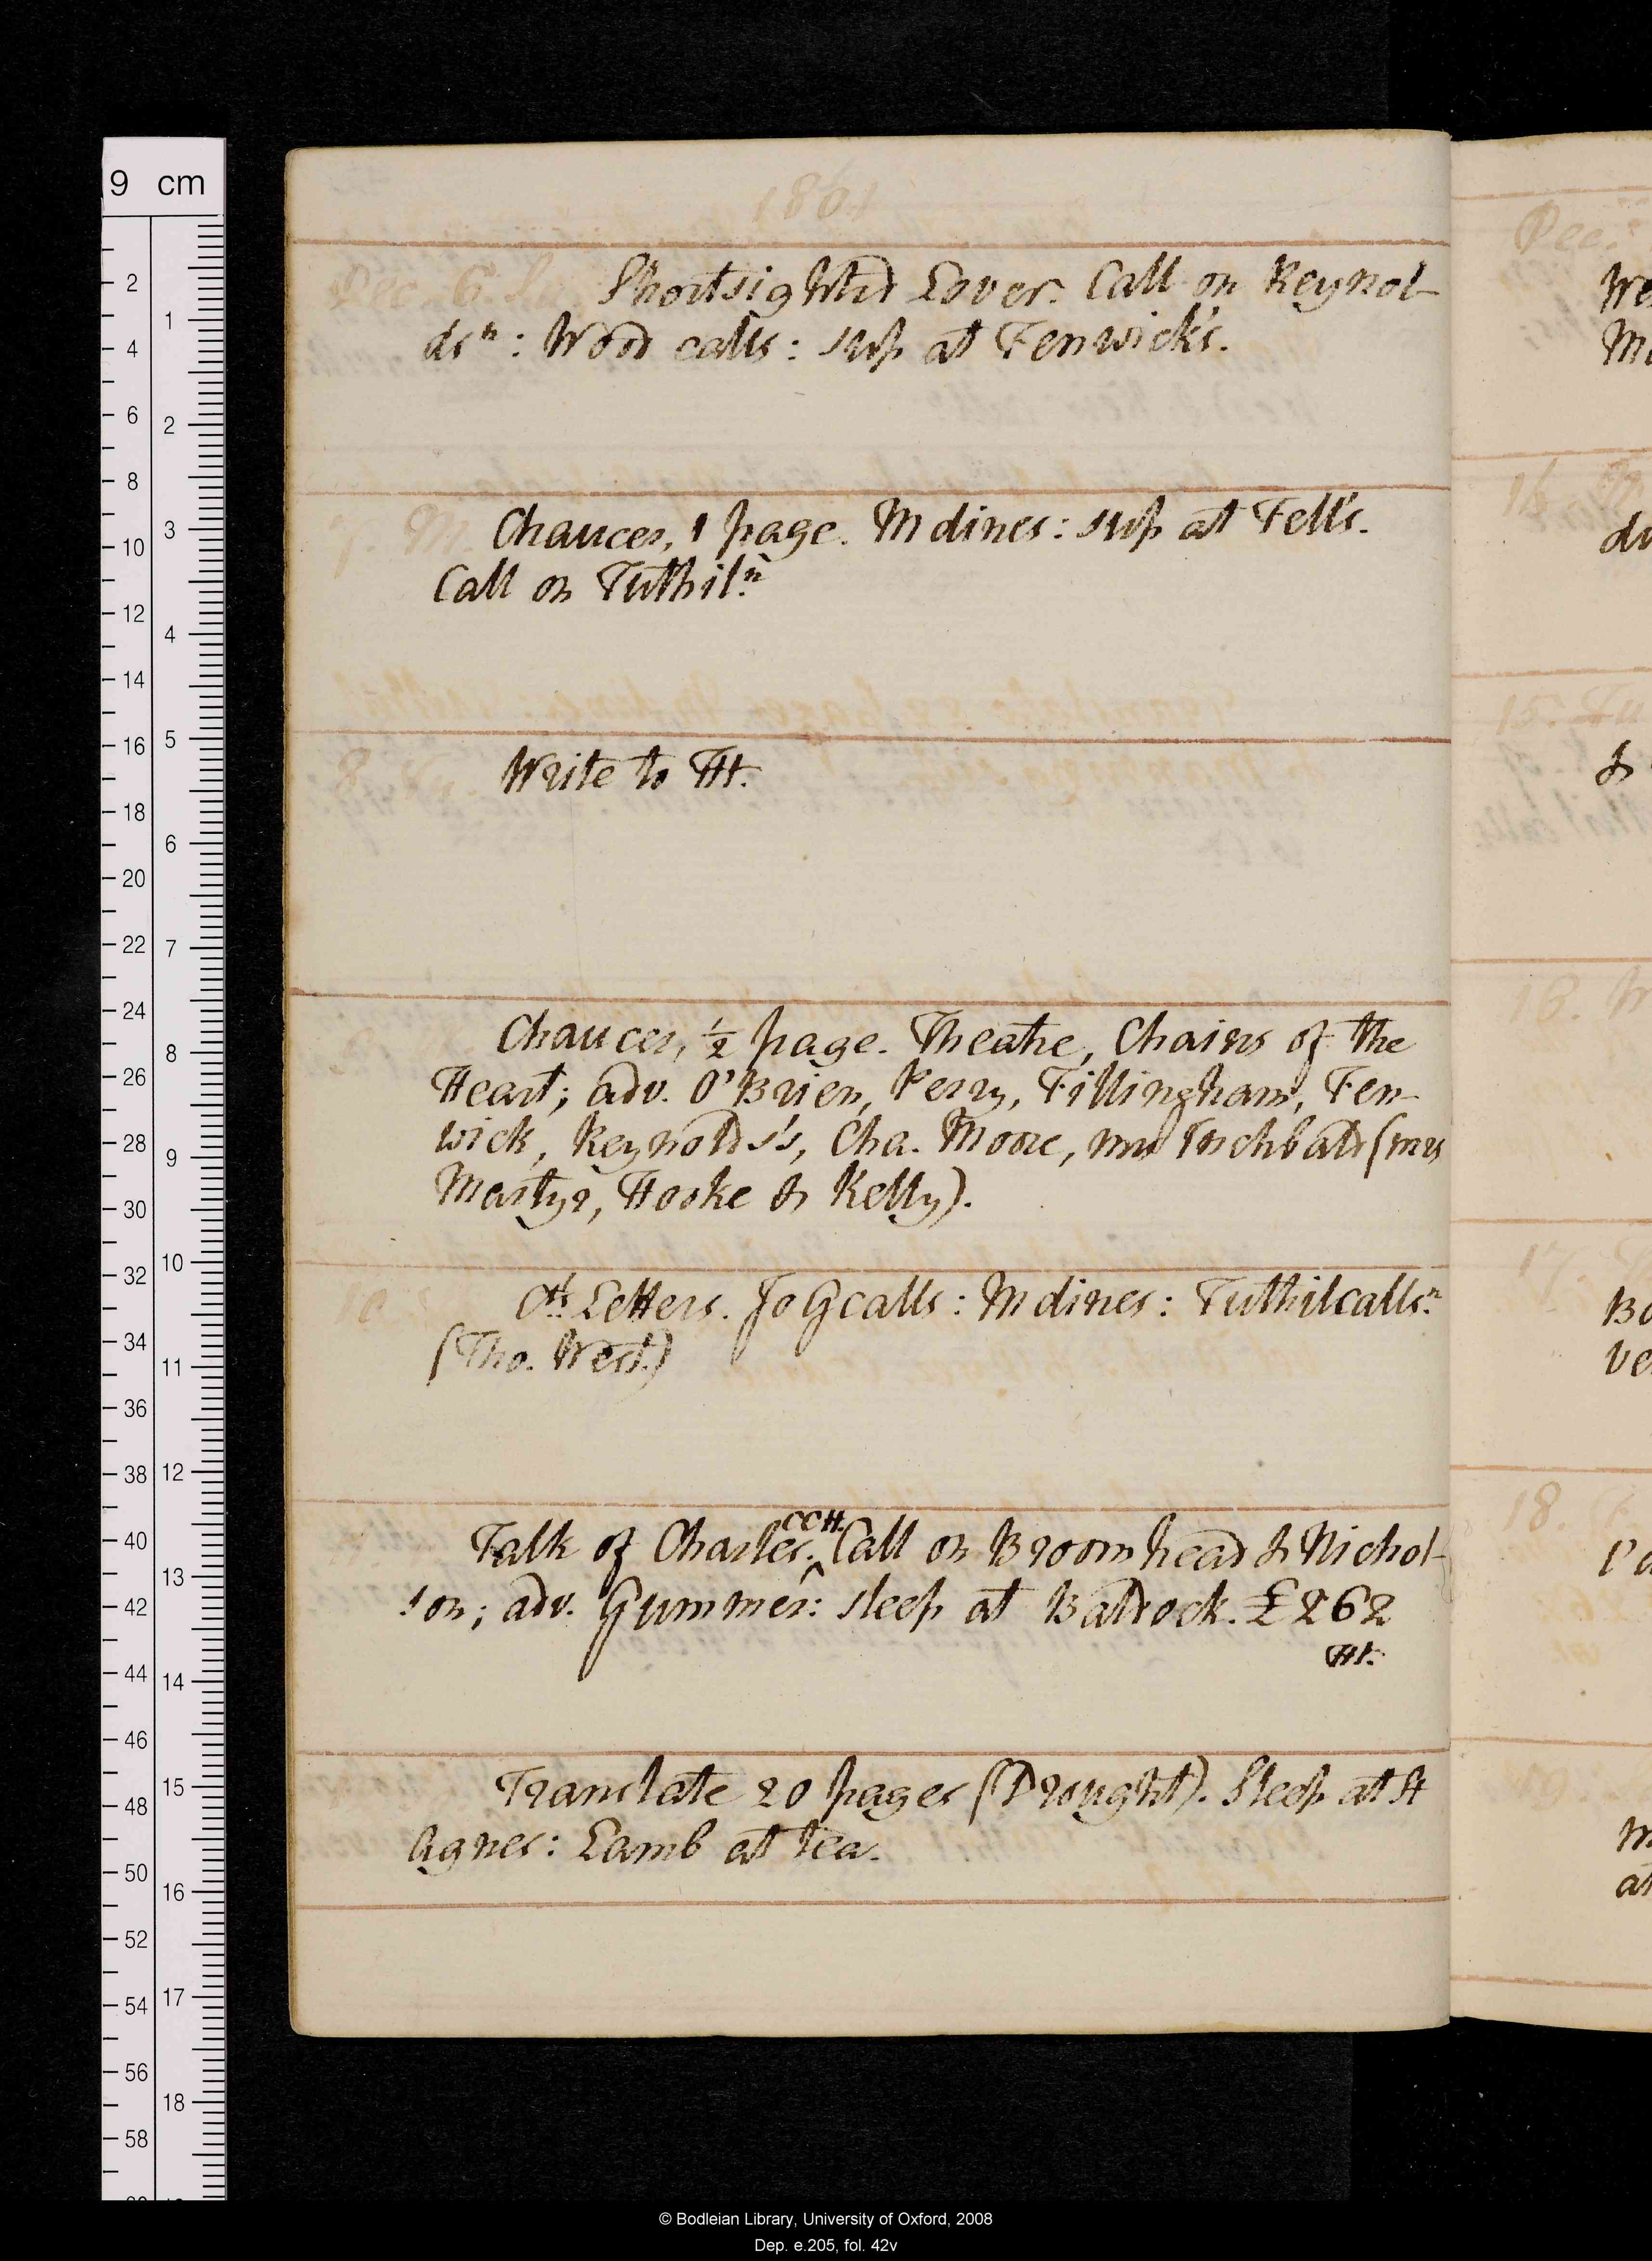 1801
Dec. 6. Shortsighted Lover. Call on Reynol-
ds n: Wood calls: sup at Fenwick's.
7. M. Chaucer, 1 page. M dines: sup at Fell's.
Call on Tuthil n
8. Tu. Write to Ht.
Chaucer, ½ page. Theatre, Chains of the
Heart; adv. O'Brien, Perry, Fillingham, Fen-
wick, Reynolds's, Cha. Moore, mrs Inchbald (mrs
Martyr, Hooke & Kelly).
10 Ch. Letters. Jo G calls: M dines: Tuthil calls n.
(Tho. West.)
CCH.
Talk of Charles. ^ Call on Broomhead & Nichol-
son; adv. Gummer: sleep at Badrock. £262
Ht.
Translate 20 pages (Drought). Sleep at St
Agnes: Lamb at tea.
Dec.
15. Tu
&
16.
18.
9 cm
© Bodleian Library, University of Oxford, 2008
Dep. e.205, fol. 42v